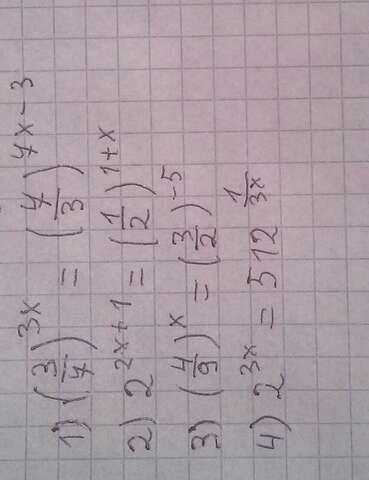 1) (3/7)^{3x} = (7/3)^{7x-3}
2) 2^{2x+1} = (1/2)^{1+x}
3) (4/9)^{x} = (3/2)^{-5}
4) 2^{3x} = 512^{1/3x}